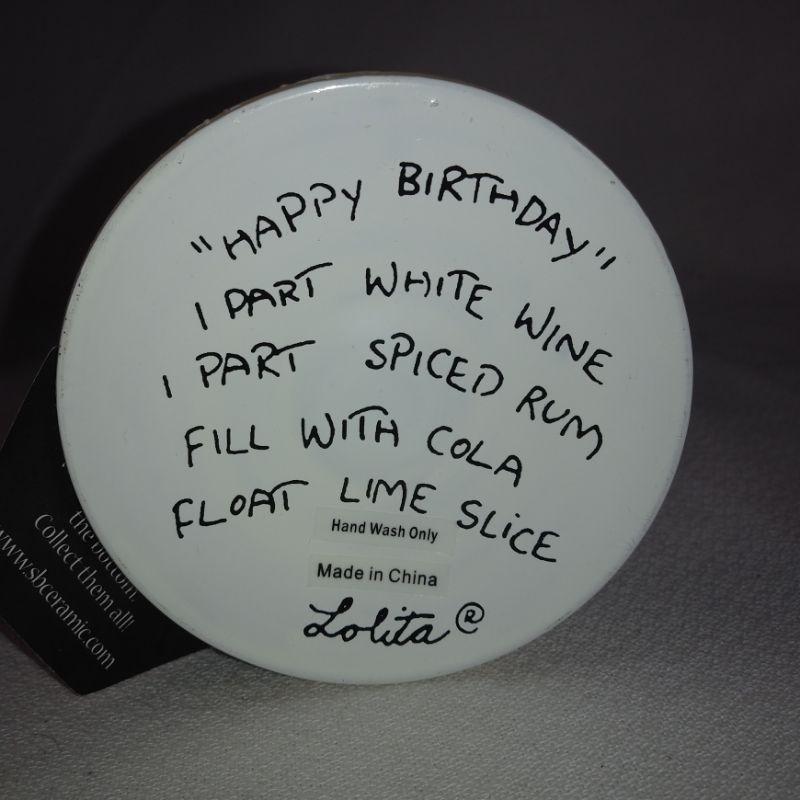 "HAPPY BIRTHDAY"
1 PART WHITE WINE
1 PART SPICED RUM
FILL WITH COLA
FLOAT LIME SLICE
Hand Wash Only
Made in China
Lolita®
the bottom.
Collect them all!
www.sbceramic.com